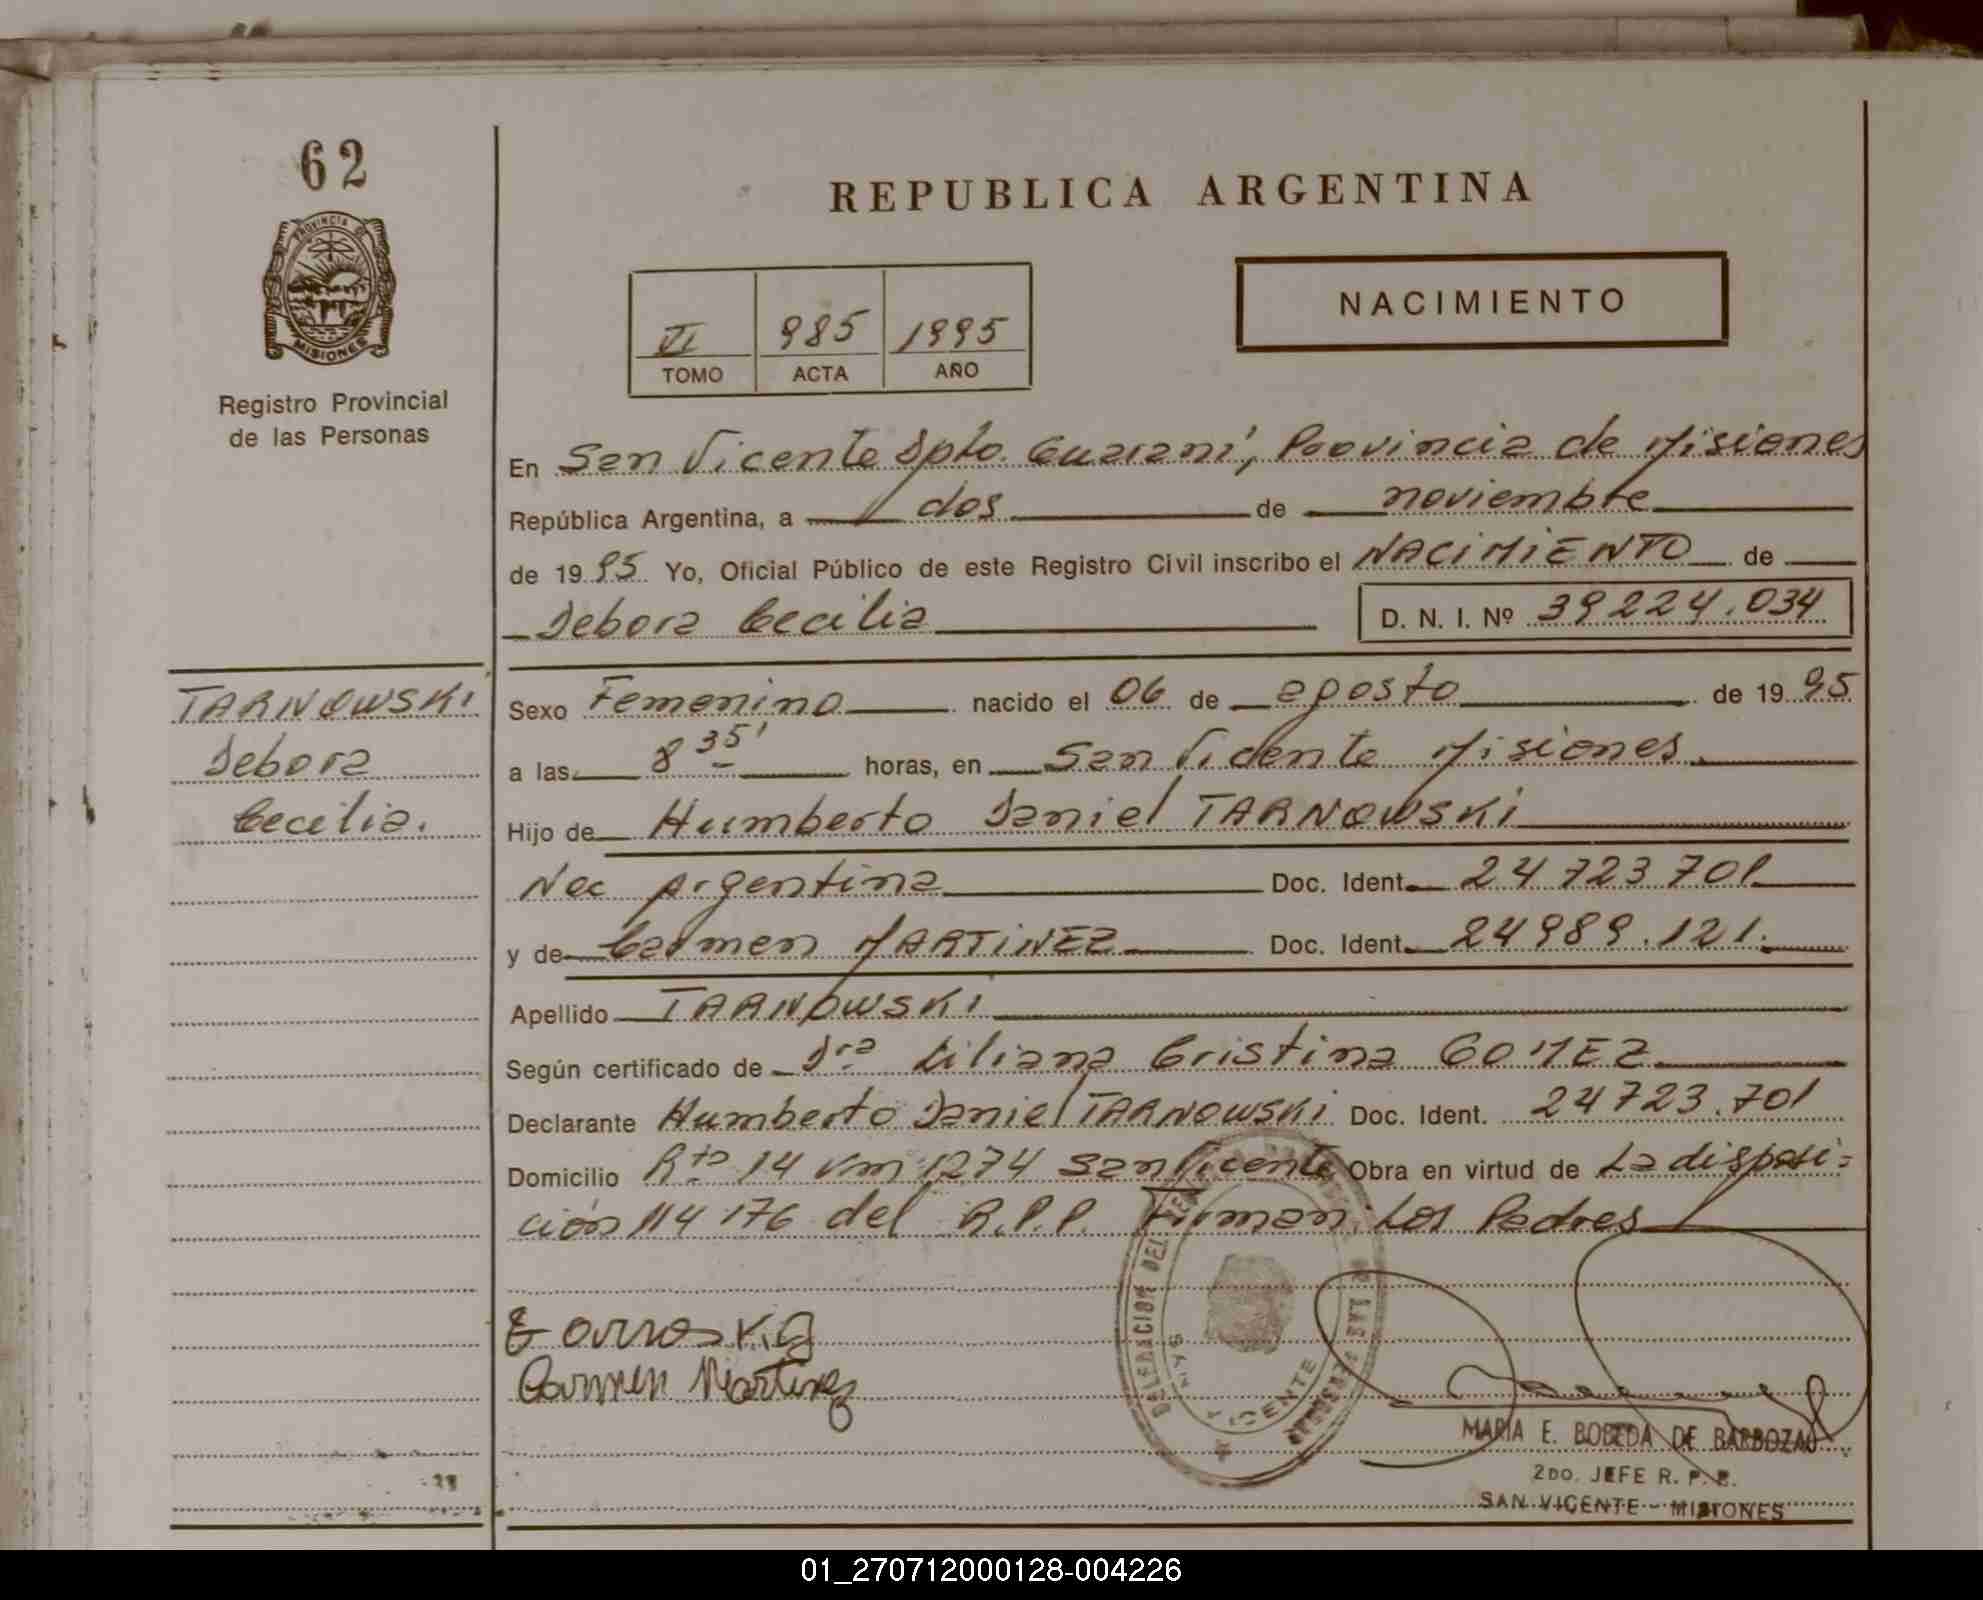 62
PROVINCIA DE
MISIONES
Registro Provincial
de las Personas
REPUBLICA ARGENTINA
VI 985 1995
TOMO ACTA AÑO
NACIMIENTO
En San Vicente Dpto. Guaraní, Provincia de Misiones
República Argentina, a dos de noviembre
de 19 95 Yo, Oficial Público de este Registro Civil inscribo el NACIMIENTO de
Debora Cecilia D. N. I. Nº 39224.034
TARNOWSKI
Debora
Cecilia.
Sexo Femenino nacido el 06 de agosto de 19 95
a las 8 35' horas, en San Vicente Misiones
Hijo de Humberto Daniel TARNOWSKI
Nac Argentina Doc. Ident. 24 723 701
y de Carmen MARTINEZ Doc. Ident. 24989.121.
Apellido TARNOWSKI
Según certificado de Dra Liliana Cristina GOMEZ
Declarante Humberto Daniel TARNOWSKI Doc. Ident. 24723.701
Domicilio Rta 14 Km 1274 San Vicente Obra en virtud de La disposi-
ción 114 176 del R.P.P. Firman: Los Padres
Carmen Martinez
DELEGACION DEL DE LAS PERSONAS
VICENTE
MARIA E. BOBEDA DE BARBOZA
2DO. JEFE R. P. P.
SAN VICENTE - MISIONES
01_270712000128-004226